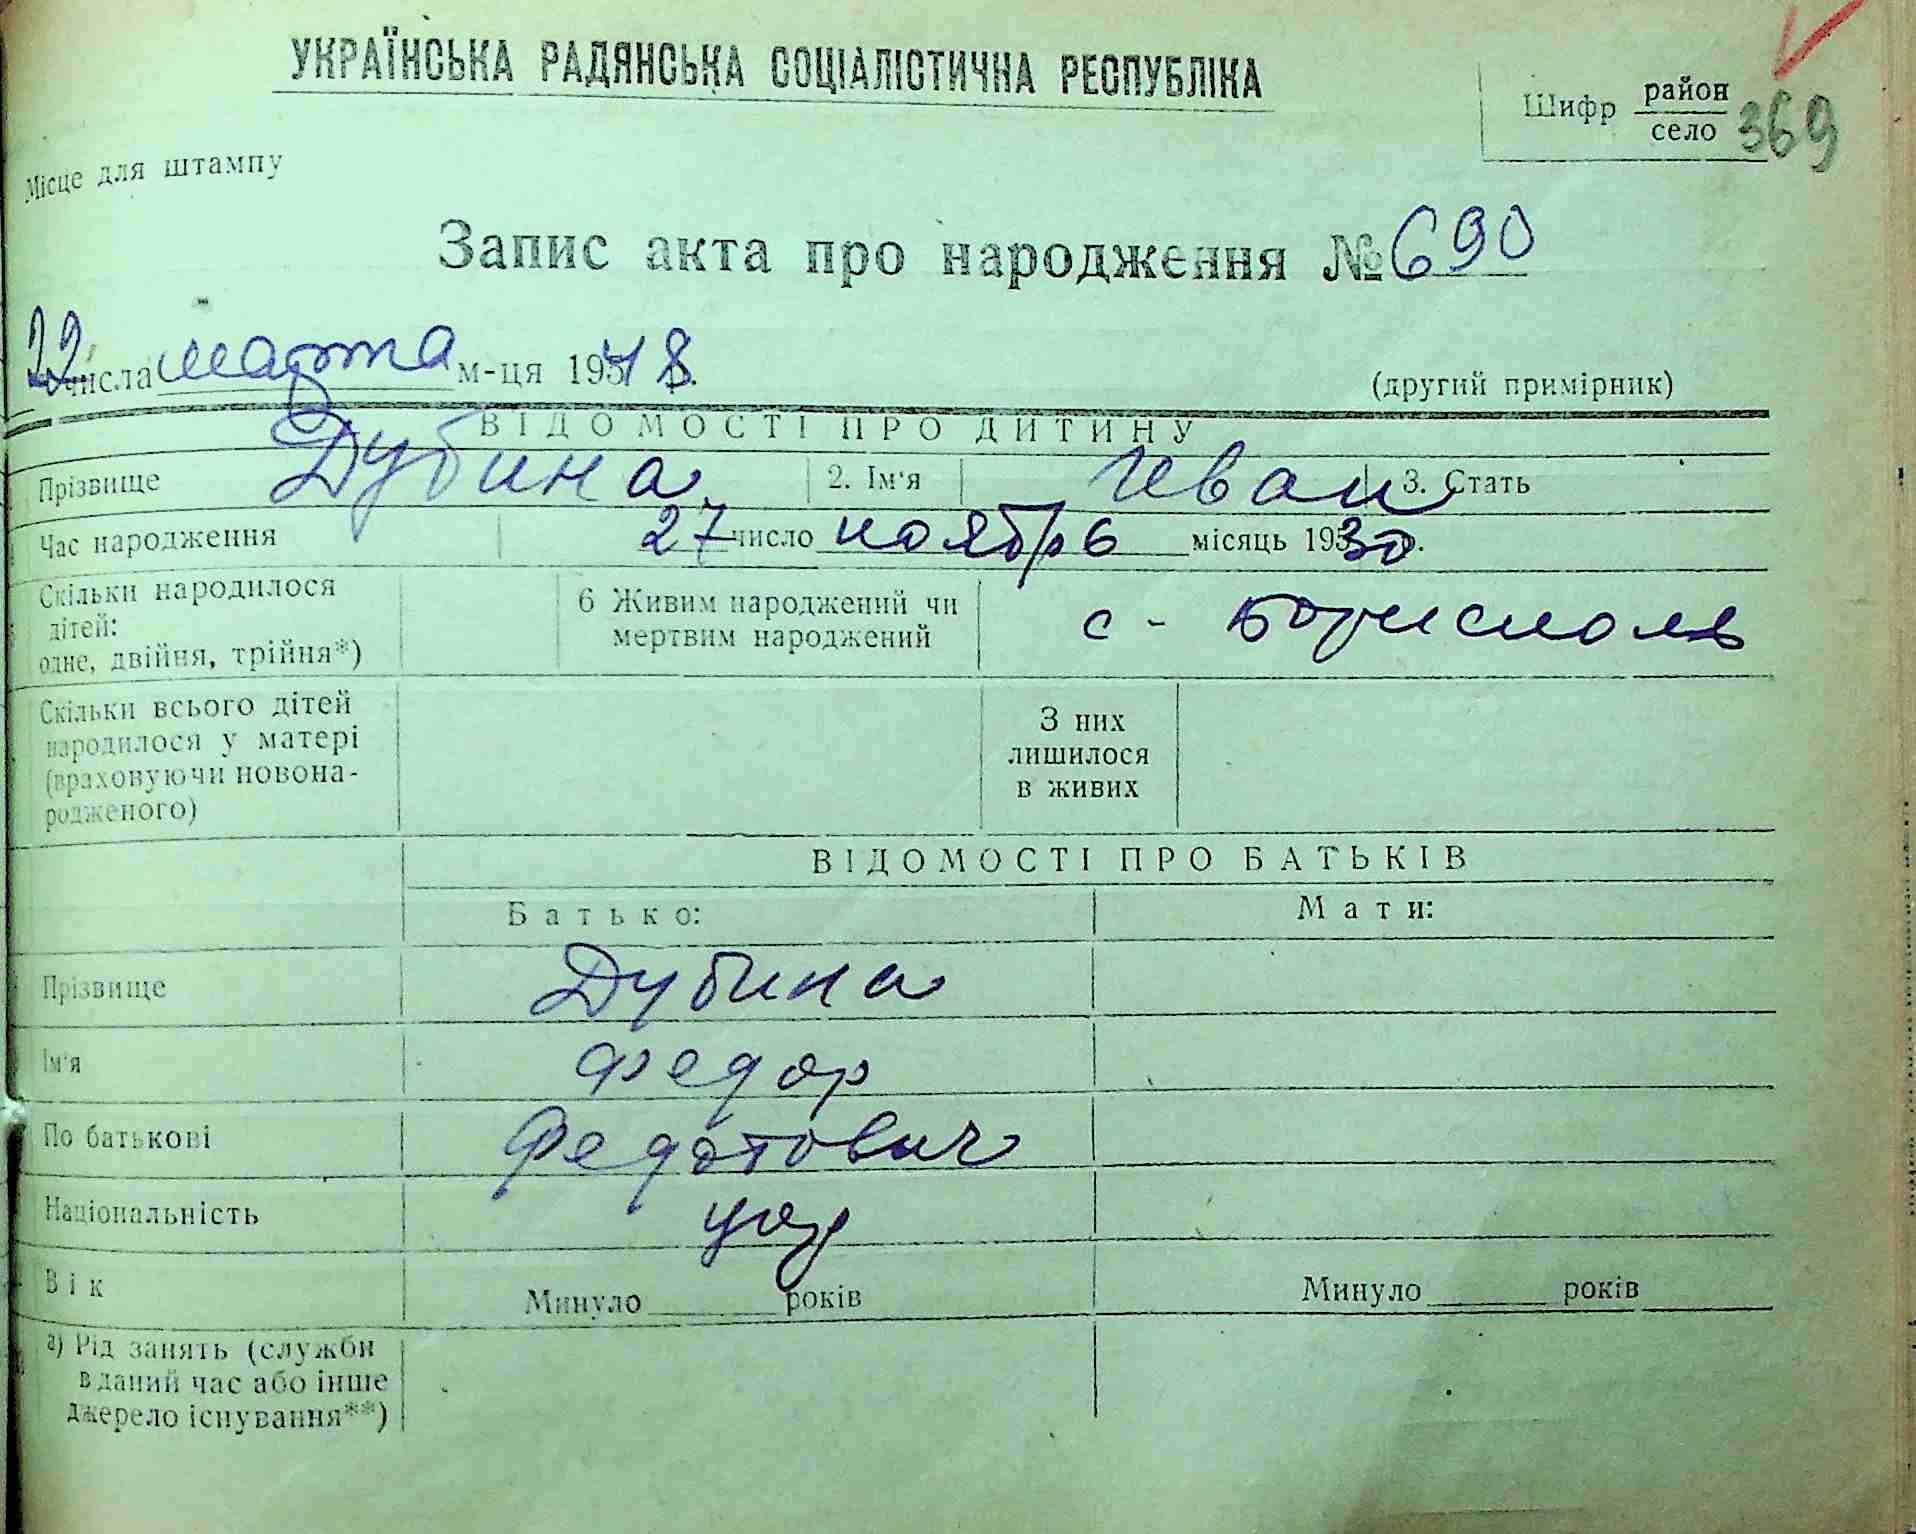 УКРАЇНСЬКА РАДЯНСЬКА СОЦІАЛІСТИЧНА РЕСПУБЛІКА
Шифр район
село 369
Місце для штампу
Запис акта про народження № 690
22 числа марта м-ця 1948 р.
(другий примірник)
ВІДОМОСТІ ПРО ДИТИНУ
Прізвище Дубина 2. Ім'я Иван 3. Стать
Час народження 27 число ноября місяць 1930 р.
Скільки народилося
дітей:
одне, двійня, трійня*)
6 Живим народжений чи
мертвим народжений
с - Борисполь
Скільки всього дітей
народилося у матері
(враховуючи новона-
родженого)
З них
лишилося
в живих
ВІДОМОСТІ ПРО БАТЬКІВ
Батько: Мати:
Прізвище Дубина
Ім'я Федор
По батькові Федотович
Національність укр
Вік Минуло ______ років Минуло ______ років
а) Рід занять (служби
в даний час або інше
джерело існування**)